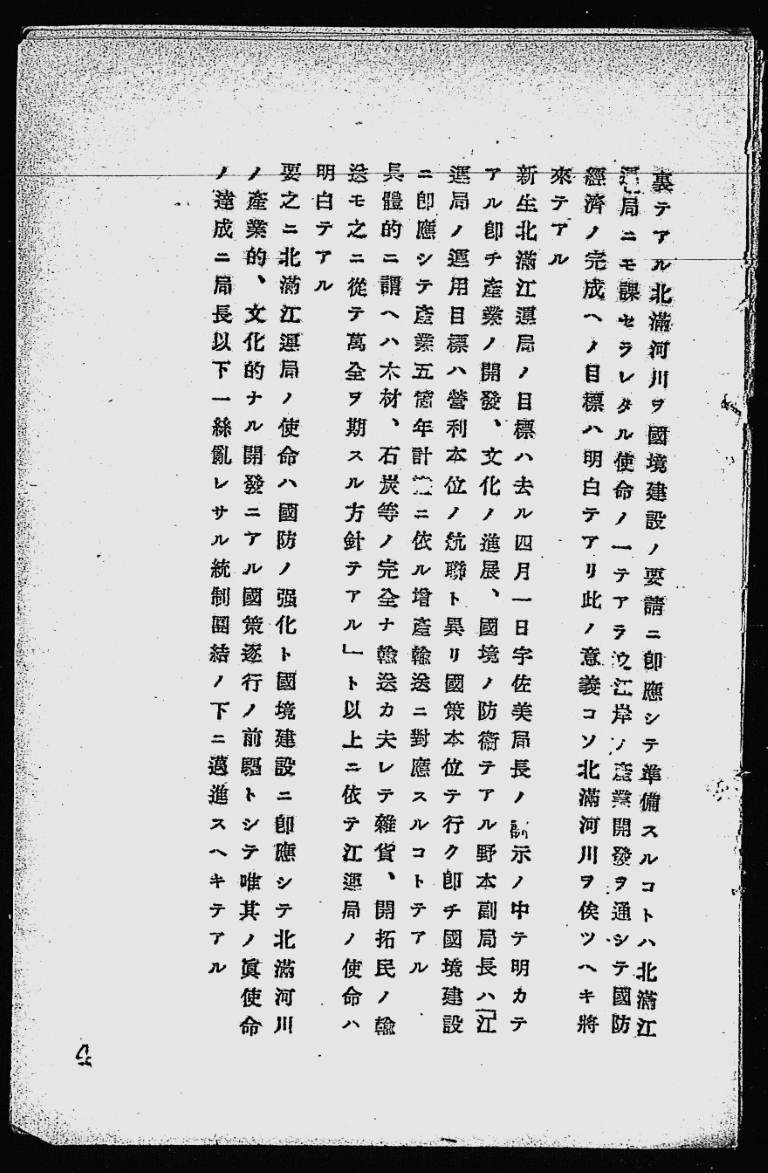 裏テアル北滿河川ヲ國境建設ノ要請ニ卽應シテ準備スルコトハ北滿江
運局ニモ課セラレタル使命ノ一テアラウ江岸ノ產業開發ヲ通シテ國防
經濟ノ完成ヘノ目標ハ明白テアリ此ノ意義コソ北滿河川ヲ俟ツヘキ將
來テアル
新生北滿江運局ノ目標ハ去ル四月一日宇佐美局長ノ訓示ノ中テ明カテ
アル卽チ產業ノ開發、文化ノ進展、國境ノ防衞テアル野本副局長ハ「江
運局ノ運用目標ハ營利本位ノ航聯ト異リ國策本位テ行ク卽チ國境建設
ニ卽應シテ產業五箇年計畫ニ依ル增產輸送ニ對應スルコトテアル
具體的ニ謂ヘハ木材、石炭等ノ完全ナ輸送カ夫レテ雜貨、開拓民ノ輸
送モ之ニ從テ萬全ヲ期スル方針テアル」ト以上ニ依テ江運局ノ使命ハ
明白テアル
要之ニ北滿江運局ノ使命ハ國防ノ强化ト國境建設ニ卽應シテ北滿河川
ノ產業的、文化的ナル開發ニアル國策逐行ノ前驅トシテ唯其ノ眞使命
ノ達成ニ局長以下一絲亂レサル統制團結ノ下ニ邁進スヘキテアル
4